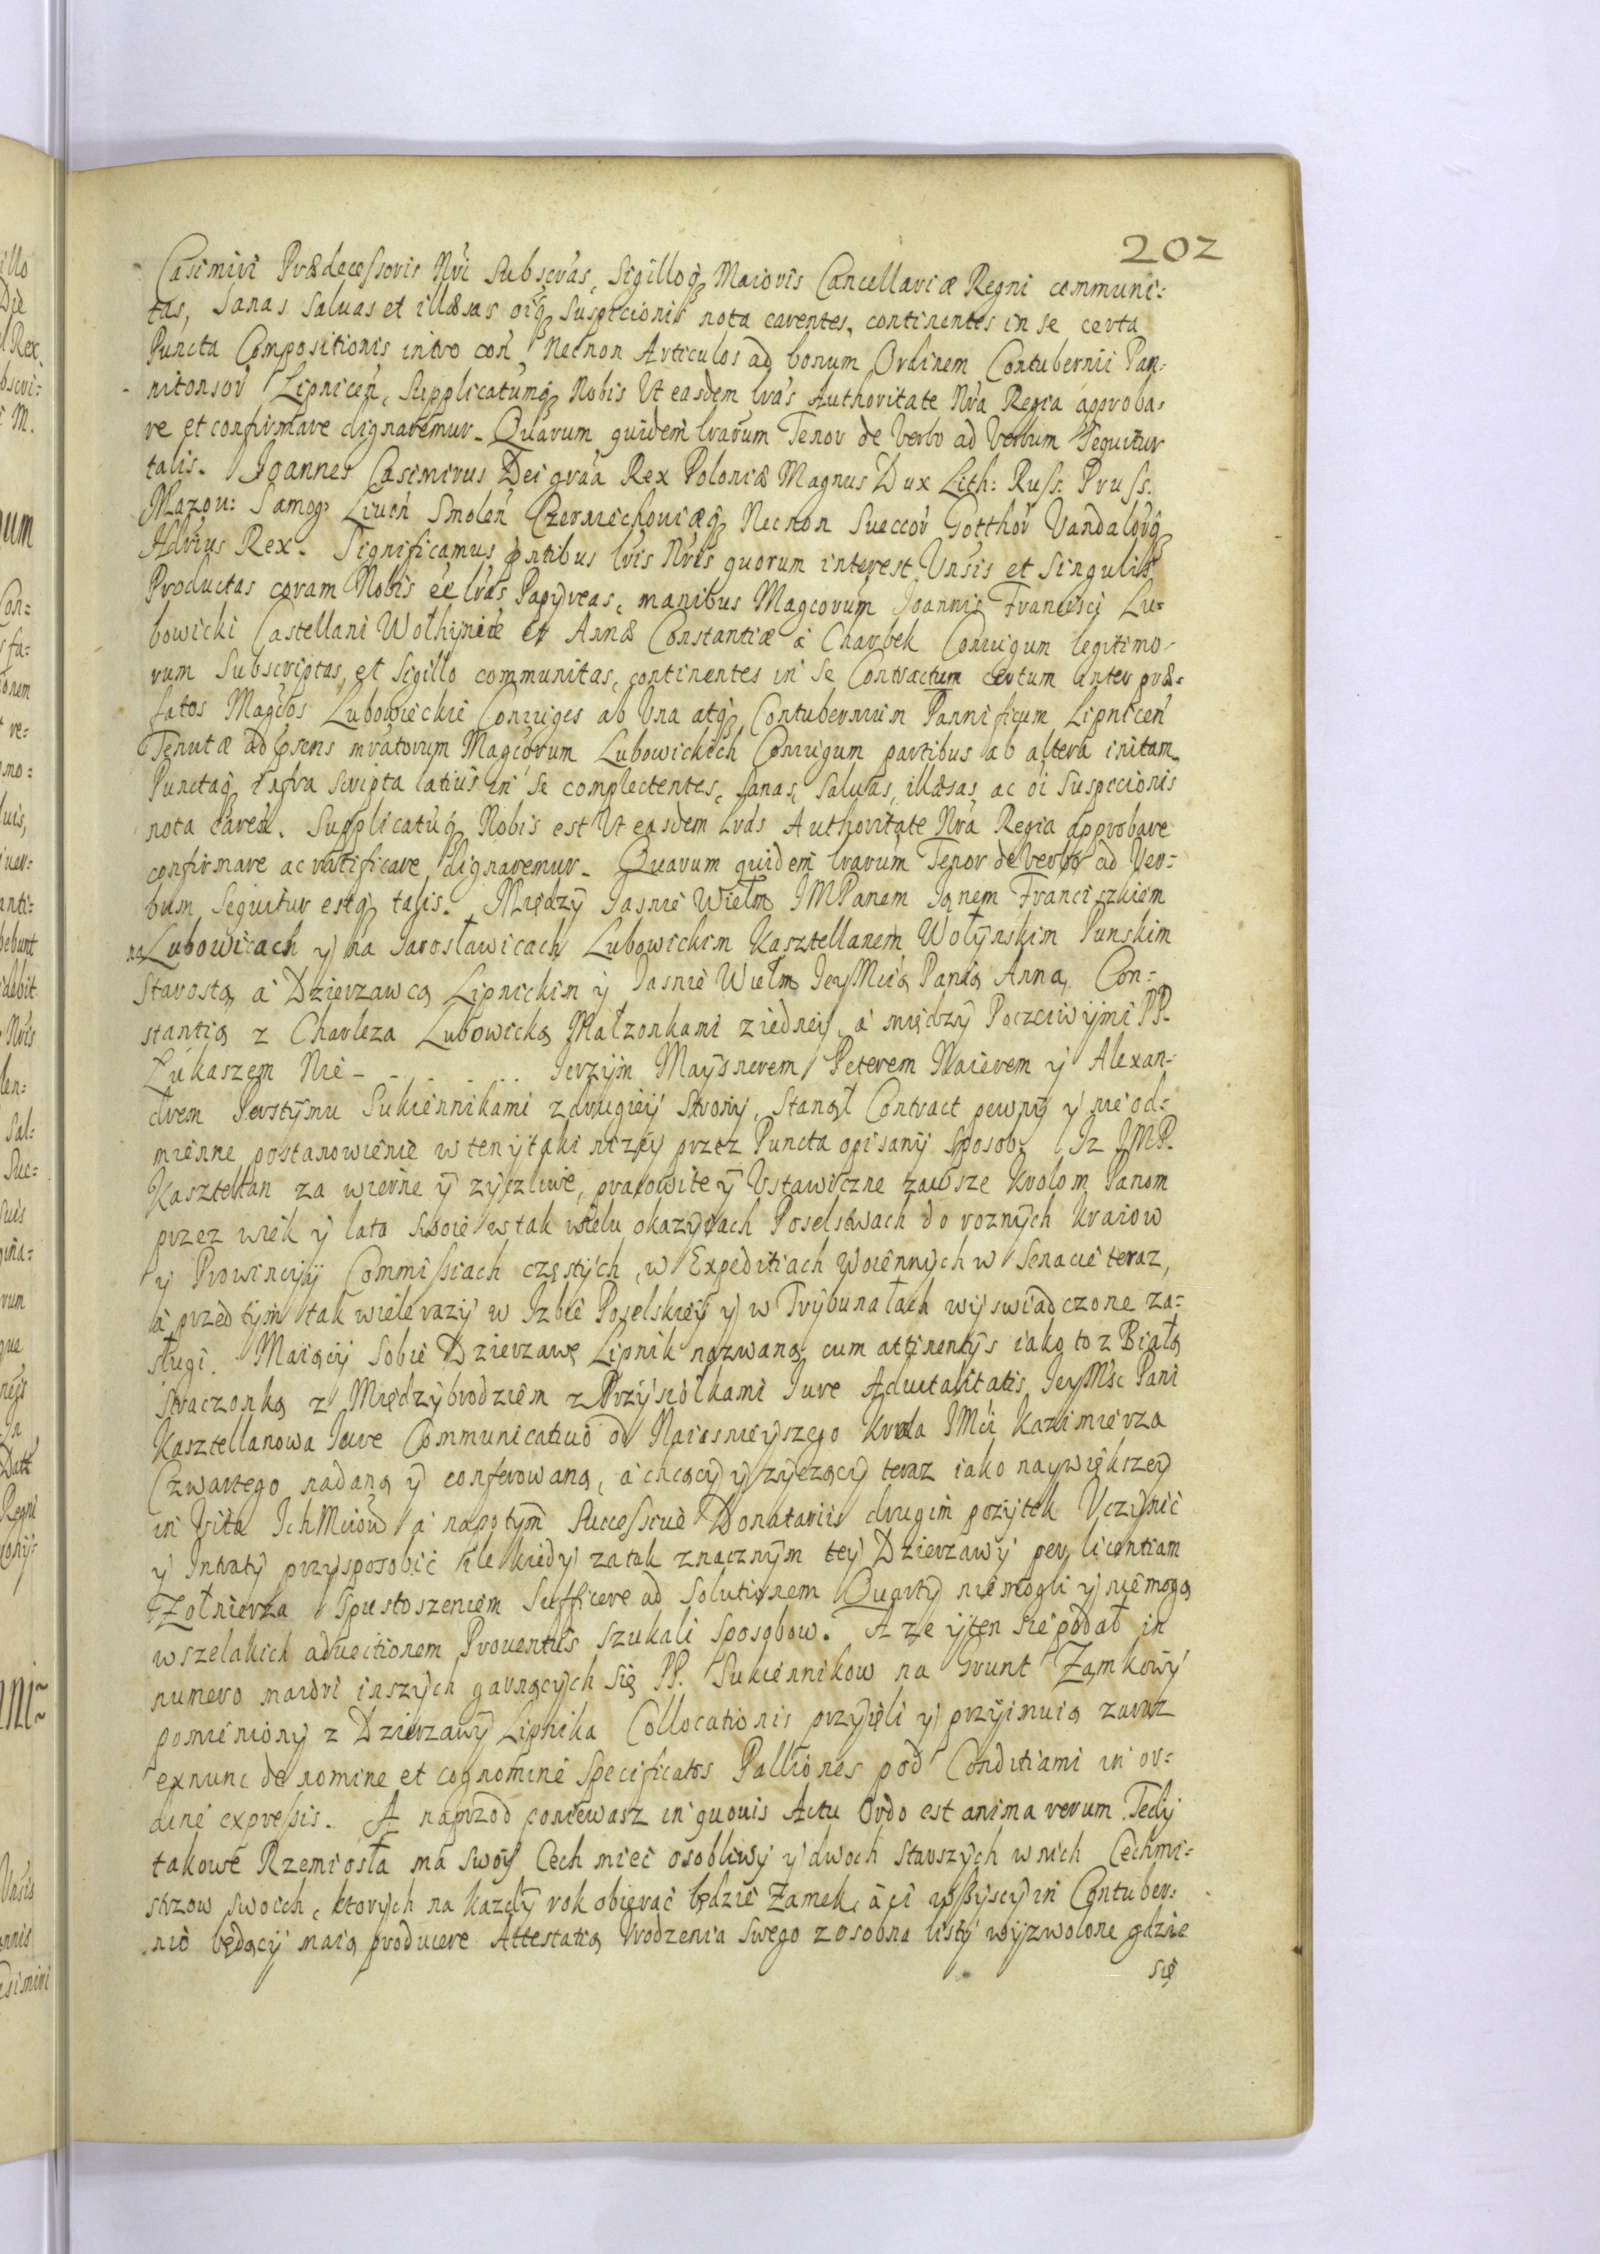 202
Casimiri Prædecessoris Nri Subscrås, Sigilloq Maioris Cancellariæ Regni communi:
tas, Sanas Saluas et illæsas oiq Suspicionis nota carentes, continentes in se certa
Puncta Compositionis intro con Necnon Articulos ad bonum Ordinem Contubernii Pan:
nitonsor Lipnicen, Supplicatumq Nobis Ut easdem lras Authoritate Nra Regia approba:
re et confirmare dignaremur. Quarum quidem lrarum Tenor de Verbo ad Verbum Sequitur
talis. Joannes Casimirus Dei graa Rex Poloniæ Magnus Dux Lith: Russ. Pruss.
Mazou: Samog: Liuon Smolen Czerniechouiæq Necnon Sueccor Gotthor Vandalorq
Hdrius Rex. Significamus pntibus lris Nris quorum interest Vnsis et Singulis
Productas coram Nobis ee lras Papyreas, manibus Magcorum Joannis Francisci Lu:
bowicki Castellani Wolhyniæ et Annæ Constantiæ a Charbek Coniugum legitimo:
rum Subscriptas, et Sigillo communitas, continentes in Se Contractum certum inter præ:
fatos Magcos Lubowickie Coniuges ab Vna atq Contubernium Pannificum Lipnicen
Tenutæ ad præns mratorum Magcorum Lubowickich Coniugum partibus ab altera initam
Punctaq infra scripta latius in Se complectentes, Sanas, Saluas, illæsas, ac oi Suspicionis
nota caren. Supplicatuq Nobis est Ut easdem Lras Authoritate Nra Regia approbare
confirmare ac ratificare dignaremur. Quarum quidem lrarum Tenor de verbo ad Ver:
bum Sequitur estq talis. Między Jasnie Wielm JMPanem Janem Franciszkiem
na Lubowicach y na Jarosławicach Lubowickim Kasztellanem Wołynskim Punskim
Starostą, a Dzierzawcą Lipnickim y Jasnie Wielm JeyMcią Panią Anną, Con:
stantią z Charleza Lubowicką Małzonkami z iedney, a między Poczciwymi PP.
Łukaszem Nie - - . . - . . . Jerzym Maysnerem Peterem Maierem y Alexan:
drem Perstymu Sukiennikami z drugiey Strony, Stanął Contract pewny y nieod:
mienne postanowienie w ten y taki nizey przez Puncta opisany Sposob. Iz JMP.
Kasztellan za wierne y zyczliwe, pracowite y Ustawiczne zawsze Krolom Panom
przez wiek y lata swoie w tak wielu okazyiach Poselstwach do roznych kraiow
y Prowincyy Commissiach częstych, w Expeditiach Woiennych w Senacie teraz,
a przed tym tak wiele razy w Izbie Poselskiey y w Trybunałach wyswiadczone za:
sługi. Maiący Sobie Dzierzawę Lipnik nazwaną cum attinentys iako to z Białą
Straczonką z Międzybrodziem z Przysiołkami Jure Aduitalitatis JeyMsc Pani
Kasztellanowa Jure Communicatiuo od Naiasnieyszego Krola JMci Kazimierza
Czwartego nadaną y conferowaną, a chcący y zyczący teraz iako naywiększey
in Vita IchMciow a napotym Successiue Donatariis drugim pozytek Uczynic
y Intraty przysposobic ale kiedy za tak znacznym tey Dzierzawy per licentiam
Zołnierza Spustoszeniem Sufficere ad Solutionem Quarty nie mogli y nie mogą
wszelakich aduectionem Prouentus szukali sposobow. A ze y ten sie podał in
numero maiori inszych garnących się PP. Sukiennikow na Grunt Zamkowy
pomieniony z Dzierzawy Lipnika Collocationis przyięli y przyimuią zaraz
exnunc de nomine et cognomine specificatos Palliones pod Conditiami in or:
dine expressis. A naprzod poniewasz in quouis Actu Ordo est anima rerum. Tedy
takowe Rzemiosła ma swoy Cech miec osobliwy y dwoch starszych w nich Cechmi:
strzow swoich, ktorych na kazdy rok obierac będzie Zamek, a ci wszyscy in Contuber:
nio będący maią producere Attestatią Urodzenia swego z osobna listy wyzwolone gdzie
się